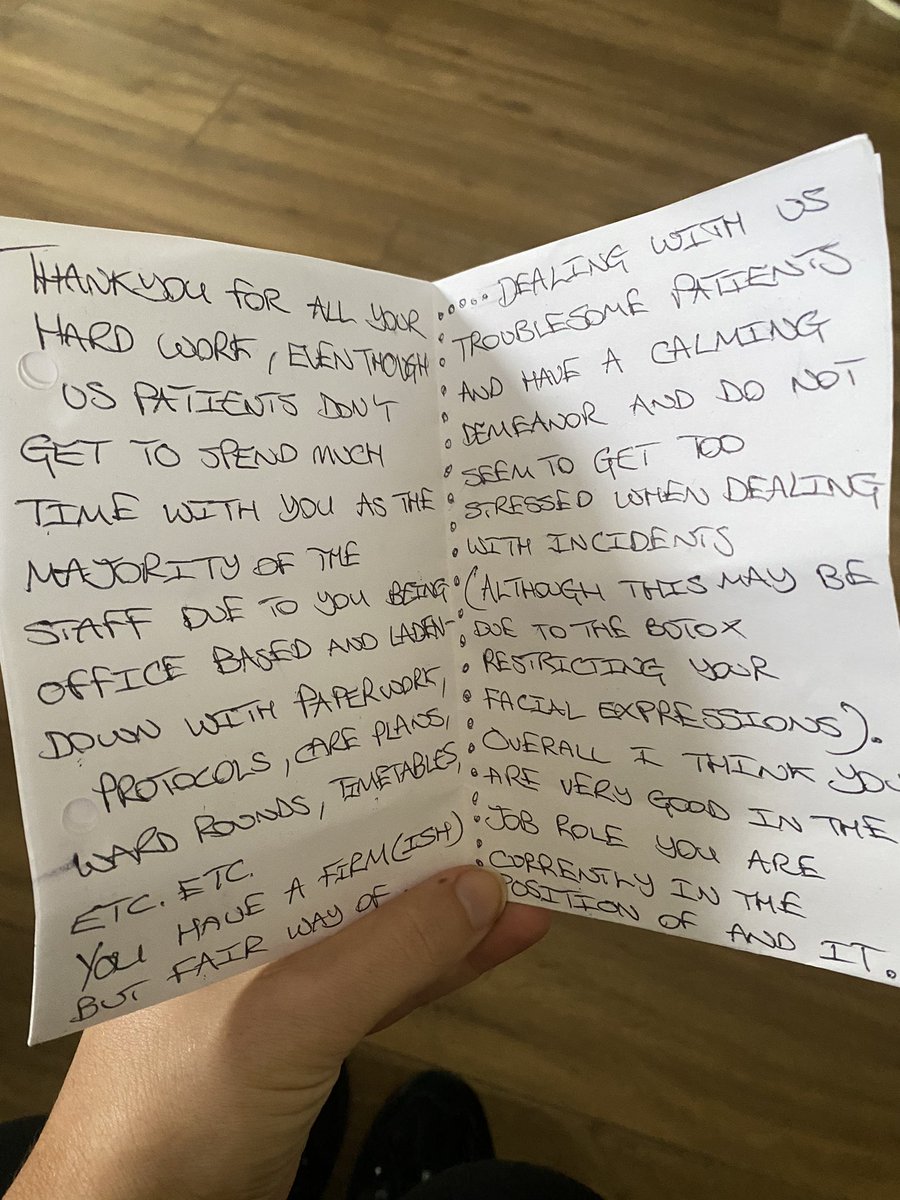 THANKYOU FOR ALL YOUR
HARD WORK, EVEN THOUGH
US PATIENTS DON'T
GET TO SPEND MUCH
TIME WITH YOU AS THE
MAJORITY OF THE
STAFF DUE TO YOU BEING
OFFICE BASED AND LADEN-
DOWN WITH PAPERWORK,
PROTOCOLS, CARE PLANS,
WARD ROUNDS, TIMETABLES,
ETC. ETC.
YOU HAVE A FIRM(ISH)
BUT FAIR WAY OF
.....DEALING WITH US
TROUBLESOME PATIENTS
AND HAVE A CALMING
DEMEANOR AND DO NOT
SEEM TO GET TOO
STRESSED WHEN DEALING
WITH INCIDENTS
(ALTHOUGH THIS MAY BE
DUE TO THE BOTOX
RESTRICTING YOUR
FACIAL EXPRESSIONS).
OVERALL I THINK YOU
ARE VERY GOOD IN THE
JOB ROLE YOU ARE
CORRENTLY IN THE
POSITION OF AND IT.